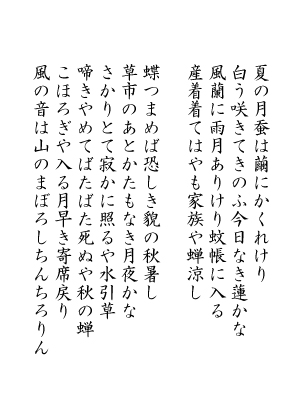 夏の月蚕は繭にかくれけり
白う咲きてきのふ今日なき蓮かな
風蘭に雨月ありけり蚊帳に入る
産着着てはやも家族や蝉涼し
蝶つまめば恐しき貌の秋暑し
草市のあとかたもなき月夜かな
さかりとて寂かに照るや水引草
啼きやめてばたばた死ぬや秋の蝉
こほろぎや入る月早き寄席戻り
風の音は山のまぼろしちんちろりん